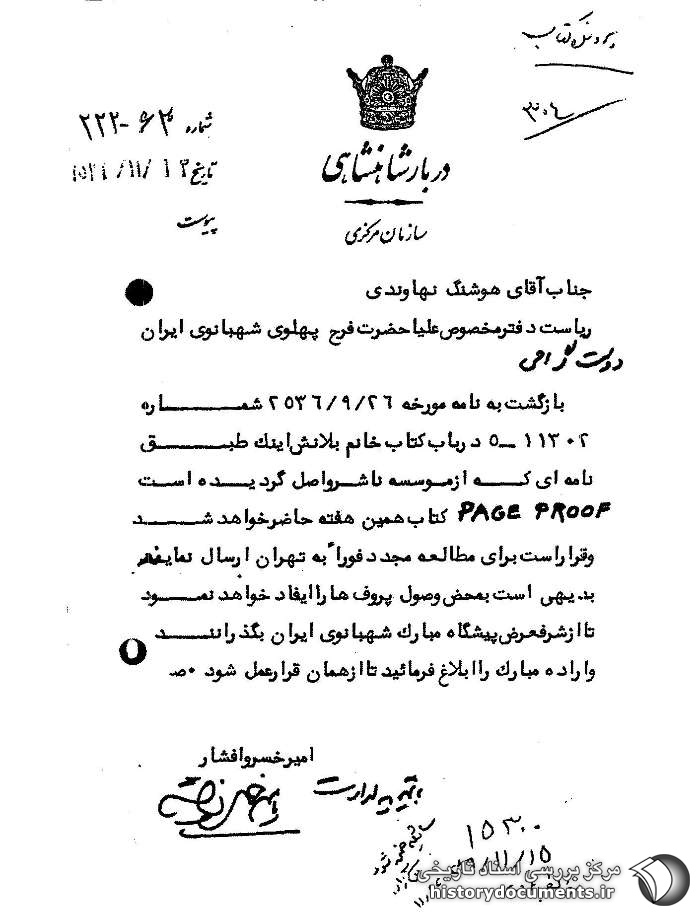 پرونده کتاب
دربار شاهنشاهی
سازمان مرکزی
شماره ۶۳-۲۲۲
تاریخ
پیوست
جناب آقای هوشنگ نهاوندی
ریاست دفتر مخصوص علیاحضرت فرح پهلوی شهبانوی ایران
دوست گرامی
بازگشت به نامه مورخه ٢٥٣٦/٩/٢٦ شماره
١١٣٠٢ـ٥ درباب کتاب خانم بلانش اینك طبق
نامه ای که ازموسسه ناشرواصل گردیده است
PAGE PROOF کتاب همین هفته حاضرخواهد شد
وقراراست برای مطالعه مجدد فوراً به تهران ارسال نمایند
بدیهی است بمحض وصول پروف هاراایفاد خواهد نمود
تاازشرفعرض پیشگاه مبارك شهبانوی ایران بگذرانند
واراده مبارك راابلاغ فرمائید تاازهمان قرارعمل شود ٠ص
امیرخسروافشار
۱۵۳۰۰
۱۱/۱۵
مرکز بررسی اسناد تاریخی
historydocuments.ir